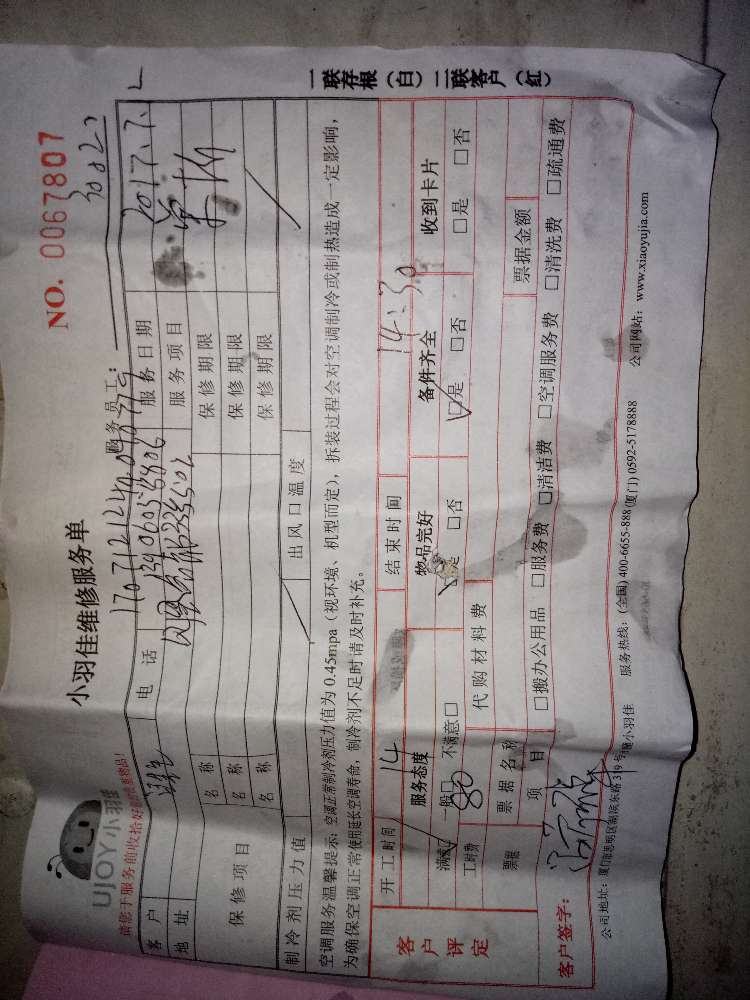 UJOY小羽佳
小羽佳维修服务单
NO. 0067807
请您于服务前收拾好您的贵重物品!
服务员工: 30022
客户
电话 13406055806
服务日期 2017.7.2
地址
服务项目
保修项目
名称
保修期限
名称
保修期限
名称
保修期限
制冷剂压力值
出风口温度
空调服务温馨提示:空调正常制冷剂压力值为0.45mpa(视环境、机型而定),拆装过程会对空调制冷或制热造成一定影响,
为确保空调正常使用延长空调寿命,制冷剂不足时请及时补充。
客户评定
开工时间 14
结束时间 14:30
服务态度
物品完好
备件齐全
收到卡片
满意□ 一般□ 不满意□
□是 □否
□是 □否
□是 □否
工时费 80
代购材料费
票据
票据名称
票据金额
项目
□搬办公用品 □服务费 □清洁费 □空调服务费 □清洗费 □疏通费
客户签字:
公司地址:厦门市思明区湖滨东路319号 小羽佳 服务热线:(全国)400-6655-888(厦门)0592-5178888 公司网站:www.xiaoyujia.com
一联存根(白)二联客户(红)